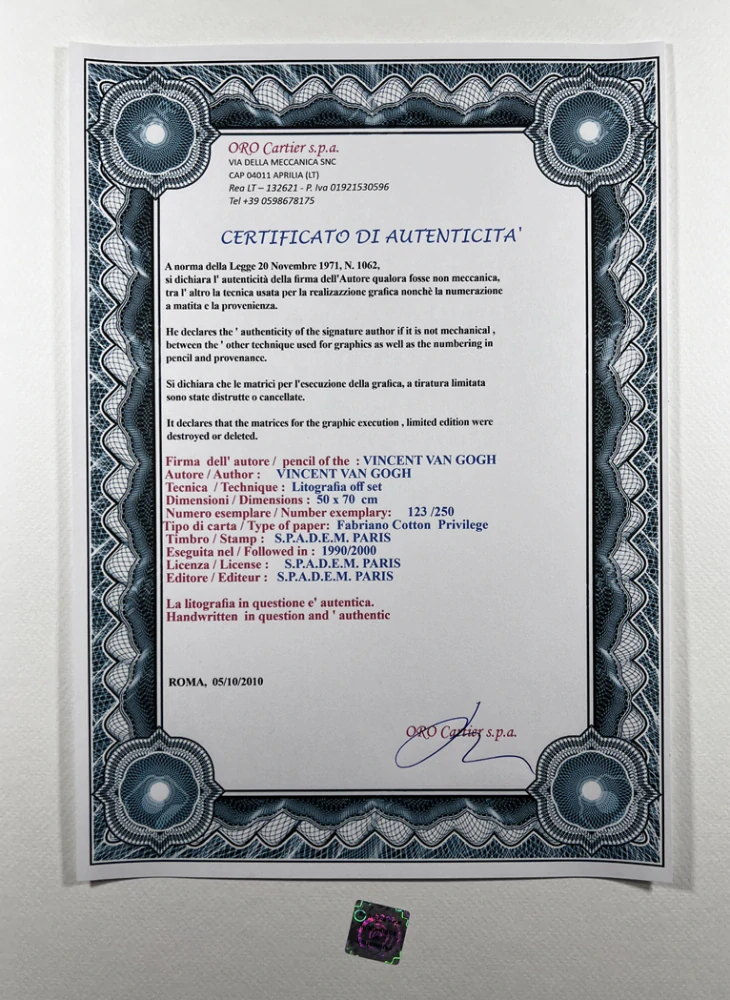 ORO Cartier s.p.a.
VIA DELLA MECCANICA SNC
CAP 04011 APRILIA (LT)
Rea LT – 132621 - P. Iva 01921530596
Tel +39 0598678175
CERTIFICATO DI AUTENTICITA'
A norma della Legge 20 Novembre 1971, N. 1062,
si dichiara l' autenticità della firma dell'Autore qualora fosse non meccanica,
tra l' altro la tecnica usata per la realizazzione grafica nonchè la numerazione
a matita e la provenienza.
He declares the ' authenticity of the signature author if it is not mechanical ,
between the ' other technique used for graphics as well as the numbering in
pencil and provenance.
Si dichiara che le matrici per l'esecuzione della grafica, a tiratura limitata
sono state distrutte o cancellate.
It declares that the matrices for the graphic execution , limited edition were
destroyed or deleted.
Firma dell' autore / pencil of the : VINCENT VAN GOGH
Autore / Author : VINCENT VAN GOGH
Tecnica / Technique : Litografia off set
Dimensioni / Dimensions : 50 x 70 cm
Numero esemplare / Number exemplary: 123 /250
Tipo di carta / Type of paper: Fabriano Cotton Privilege
Timbro / Stamp : S.P.A.D.E.M. PARIS
Eseguita nel / Followed in : 1990/2000
Licenza / License : S.P.A.D.E.M. PARIS
Editore / Editeur : S.P.A.D.E.M. PARIS
La litografia in questione e' autentica.
Handwritten in question and ' authentic
ROMA, 05/10/2010
ORO Cartier s.p.a.